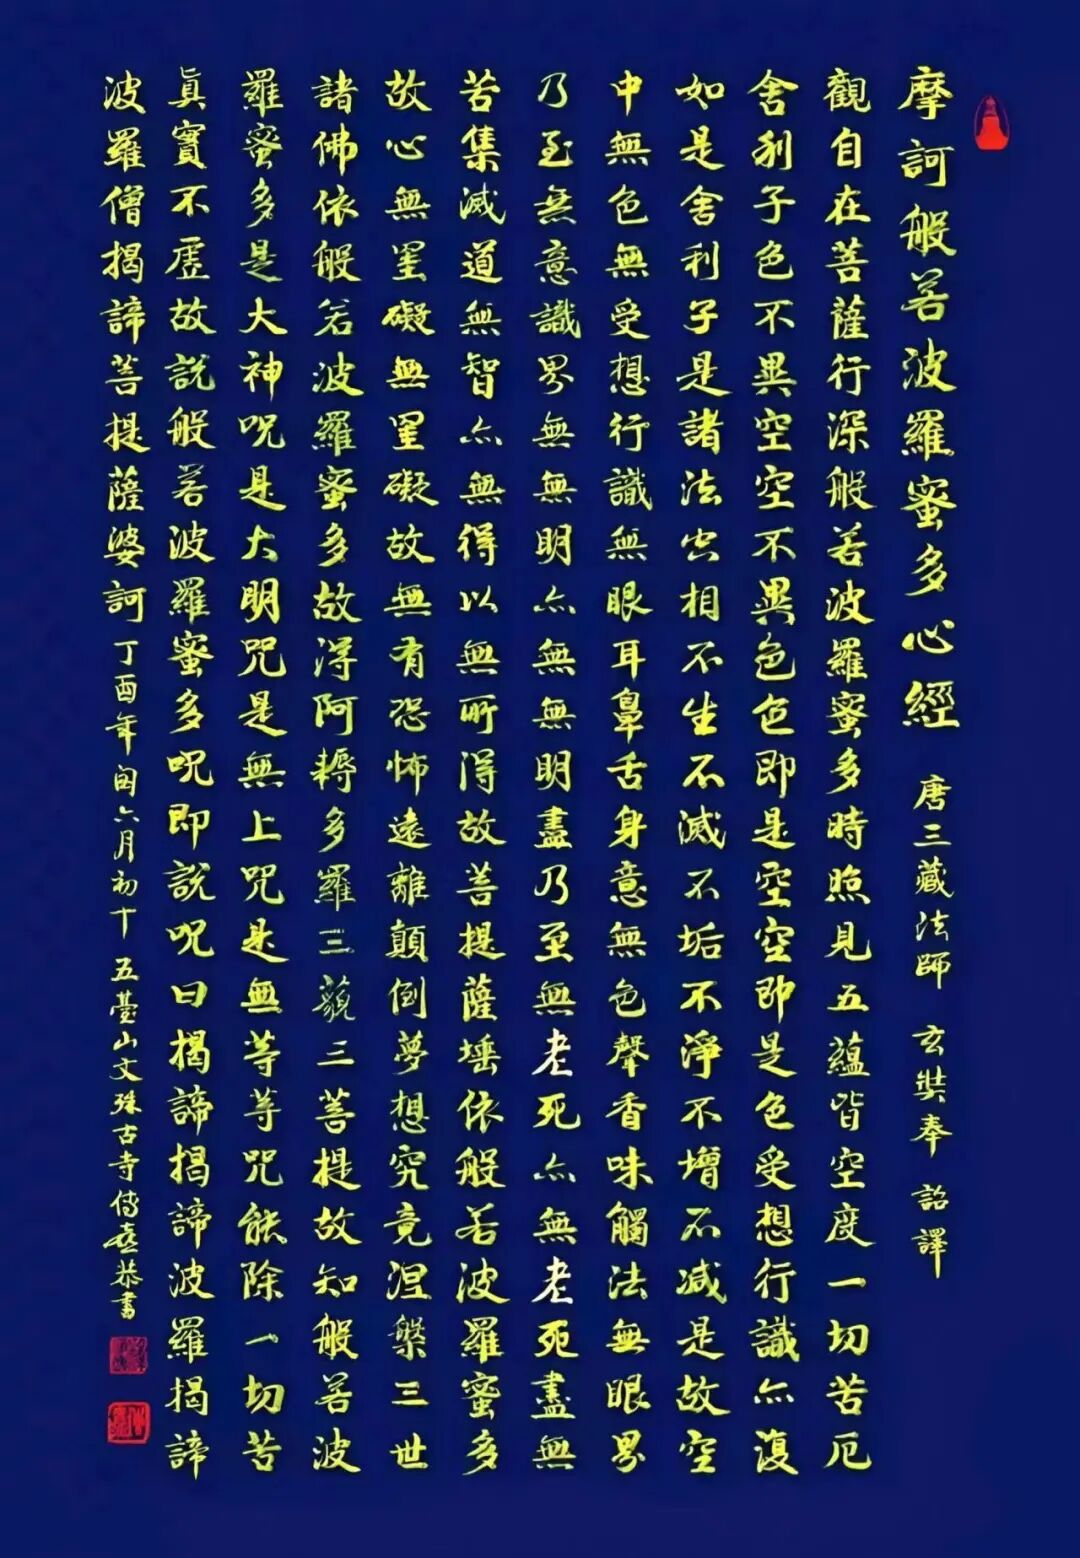 摩訶般若波羅蜜多心經 唐三藏法師 玄奘奉 詔譯
觀自在菩薩行深般若波羅蜜多時照見五蘊皆空度一切苦厄
舍利子色不異空空不異色色即是空空即是色受想行識亦復
如是舍利子是諸法空相不生不滅不垢不淨不增不減是故空
中無色無受想行識無眼耳鼻舌身意無色聲香味觸法無眼界
乃至無意識界無無明亦無無明盡乃至無老死亦無老死盡無
苦集滅道無智亦無得以無所得故菩提薩埵依般若波羅蜜多
故心無罣礙無罣礙故無有恐怖遠離顛倒夢想究竟涅槃三世
諸佛依般若波羅蜜多故得阿耨多羅三藐三菩提故知般若波
羅蜜多是大神呪是大明咒是無上咒是無等等咒能除一切苦
眞實不虛故說般若波羅蜜多呪即說呪曰揭諦揭諦波羅揭諦
波羅僧揭諦菩提薩婆訶 丁酉年閏六月初十五臺山文殊古寺傳喜恭書